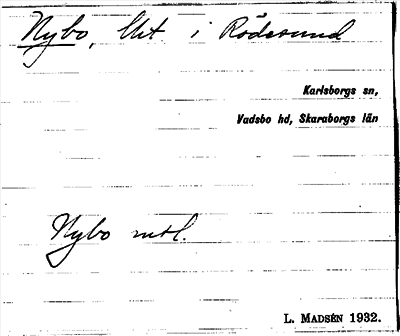 Nybo, lht i Rödesund
Karlsborgs sn,
Vadsbo hd, Skaraborgs län
Nybo mtl.
L. MADSÉN 1932.